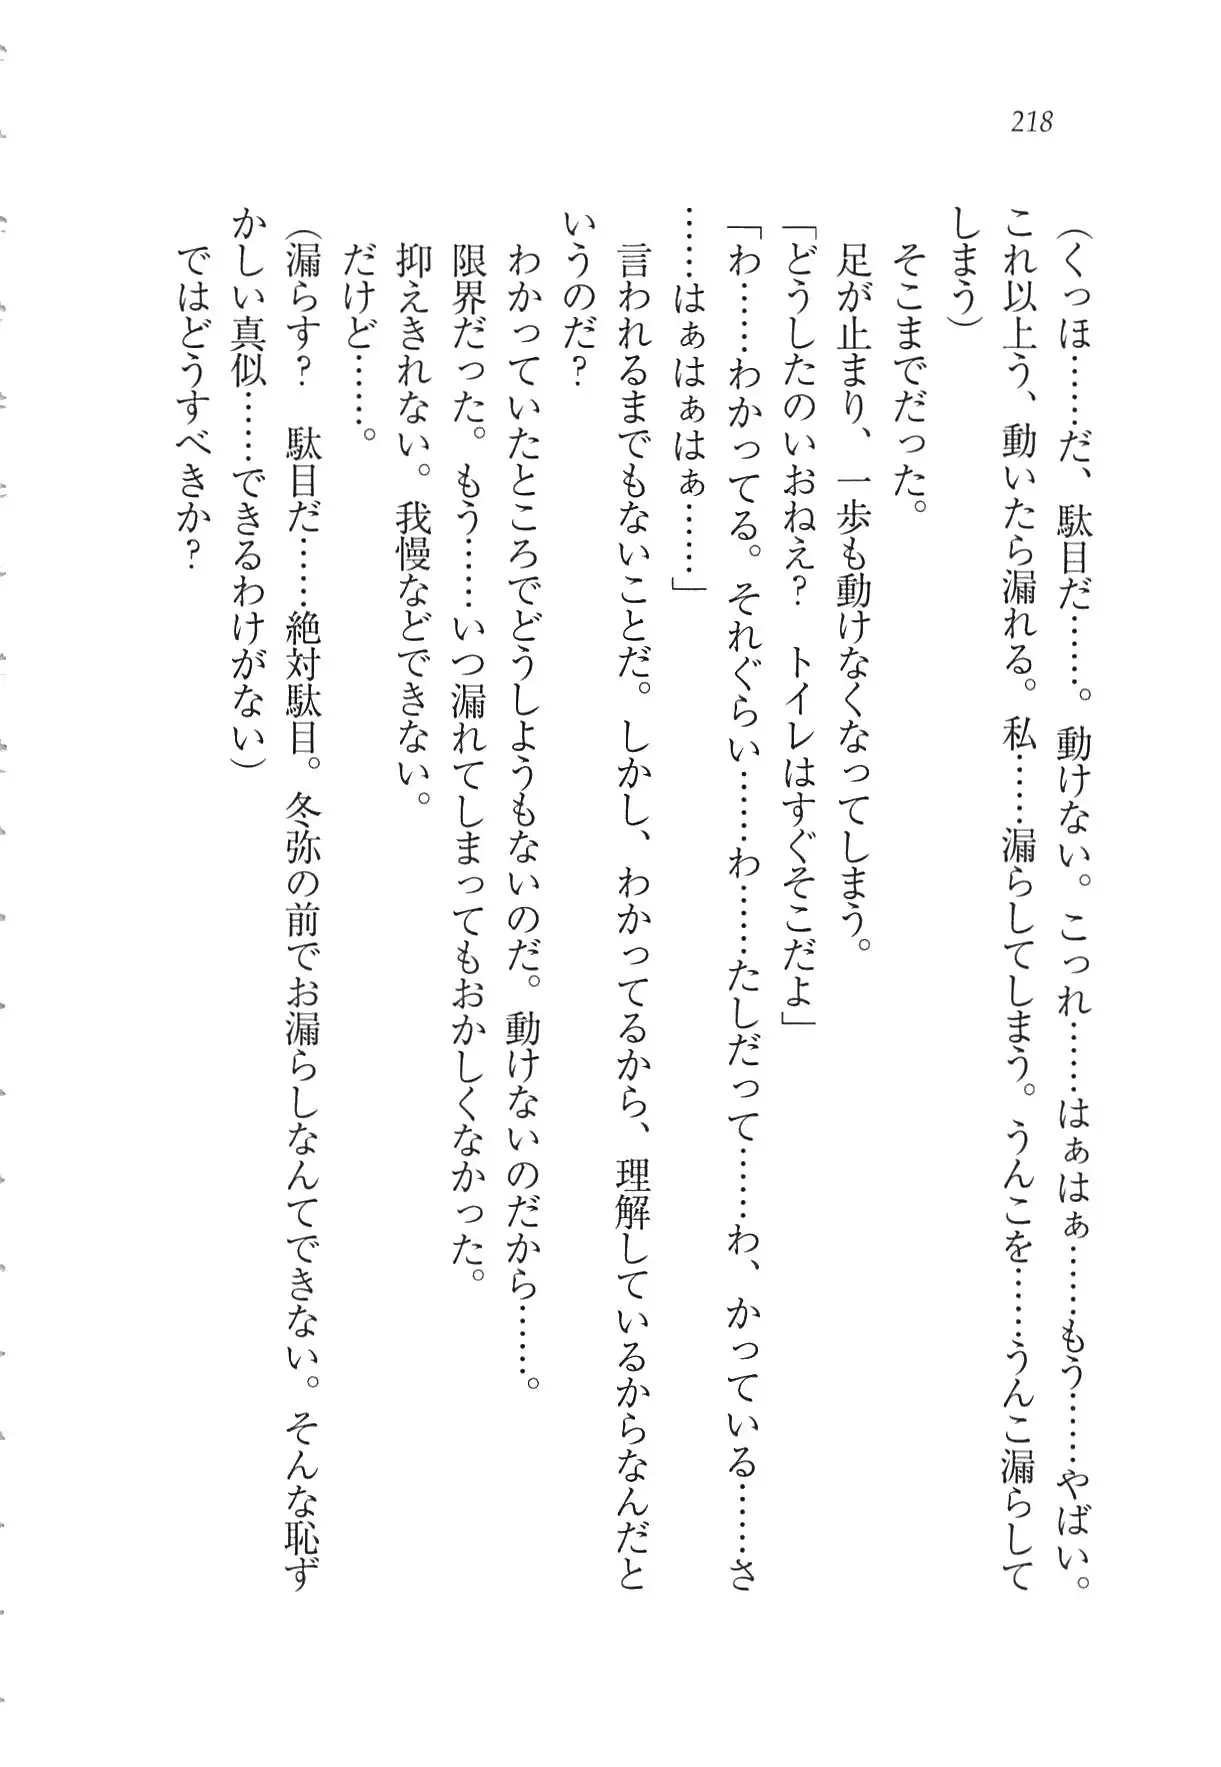 218
（くっほ……だ、駄目だ……。動けない。こっれ……はぁはぁ……もう……やばい。
これ以上う、動いたら漏れる。私……漏らしてしまう。うんこを……うんこ漏らして
しまう）
そこまでだった。
足が止まり、一歩も動けなくなってしまう。
「どうしたのいおねぇ？　トイレはすぐそこだよ」
「わ……わかってる。それぐらい……わ……たしだって……わ、かっている……さ
……はぁはぁはぁ……」
言われるまでもないことだ。しかし、わかってるから、理解しているからなんだと
いうのだ？
わかっていたところでどうしようもないのだ。動けないのだから……。
限界だった。もう……いつ漏れてしまってもおかしくなかった。
抑えきれない。我慢などできない。
だけど……。
（漏らす？　駄目だ……絶対駄目。冬弥の前でお漏らしなんてできない。そんな恥ず
かしい真似……できるわけがない）
ではどうすべきか？